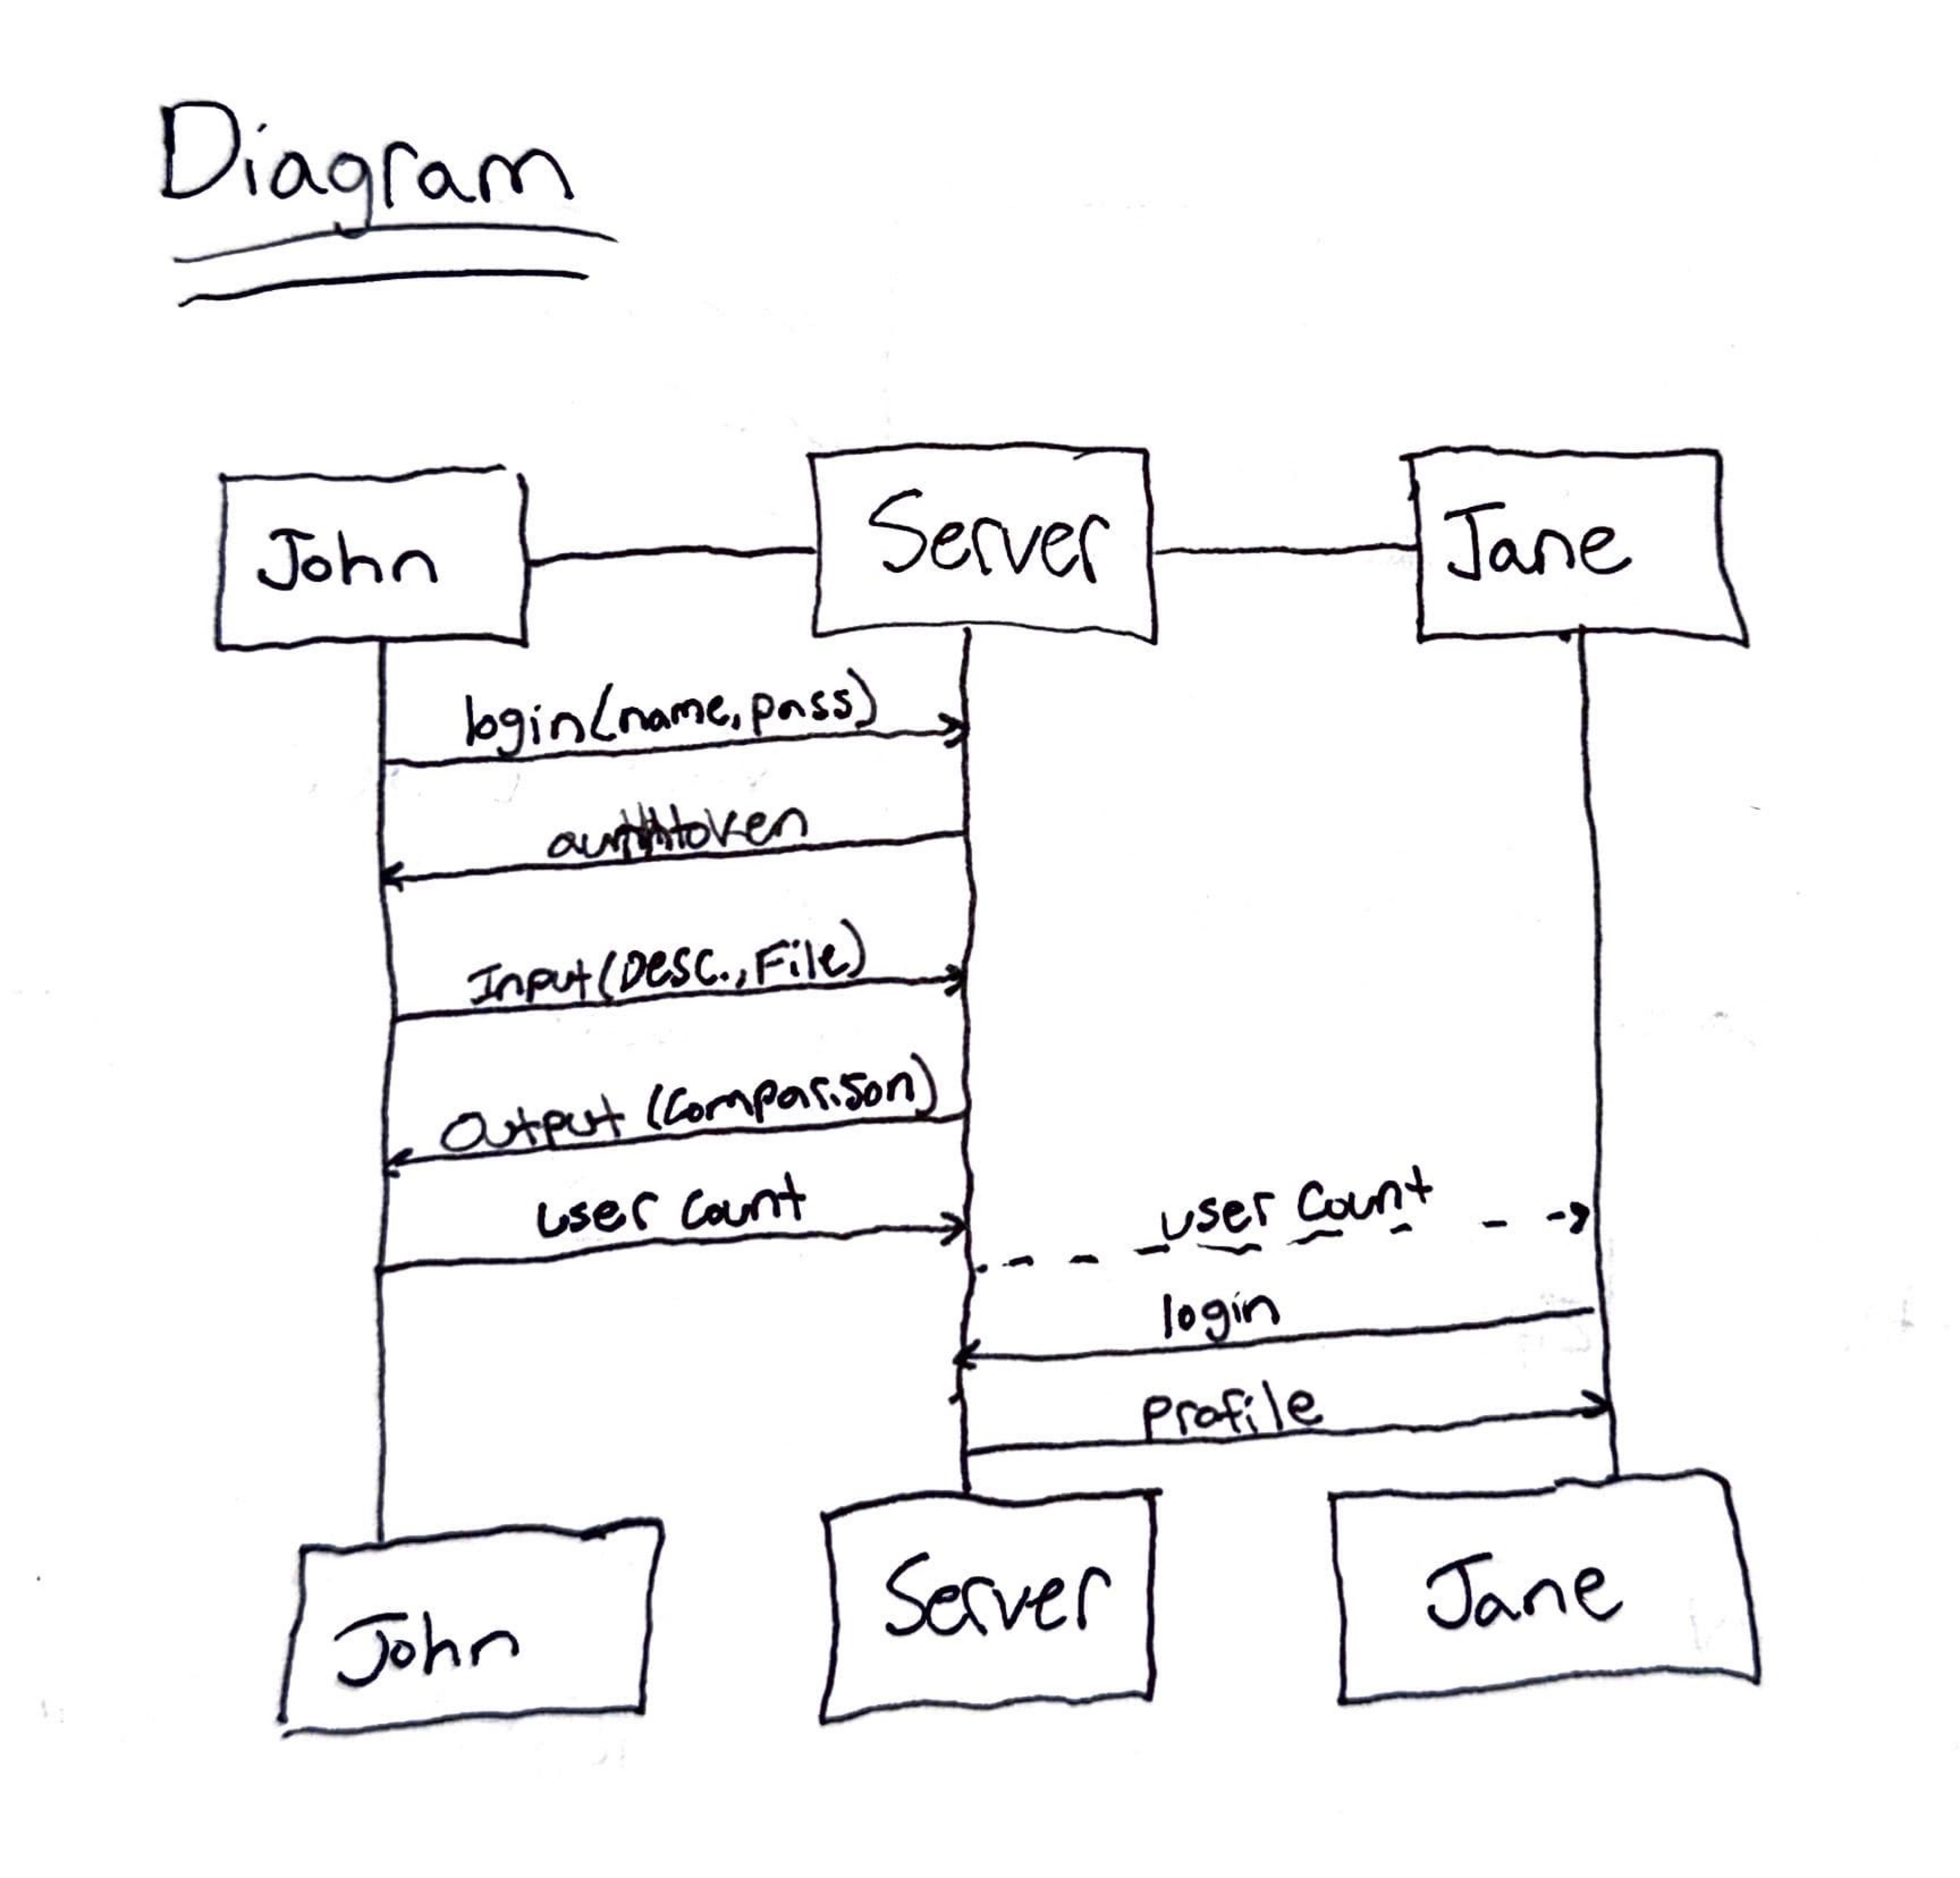 Diagram
John
Server
Jane
login(name, pass)
Input(Desc., File)
Output (Comparison)
user count
user count
login
profile
John
Server
Jane